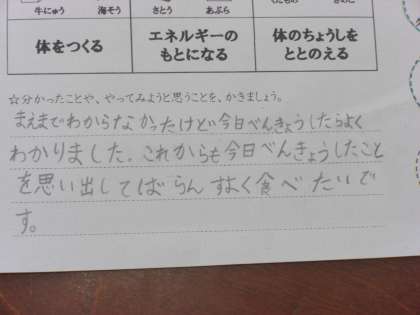 牛にゅう 海そう さとう あぶら
体をつくる エネルギーの もとになる 体のちょうしを ととのえる
☆分かったことや、やってみようと思うことを、かきましょう。
まえまでわからなかったけど今日べんきょうしたらよく
わかりました。これからも今日べんきょうしたこと
を思い出してばらんすよく食べたいで
す。